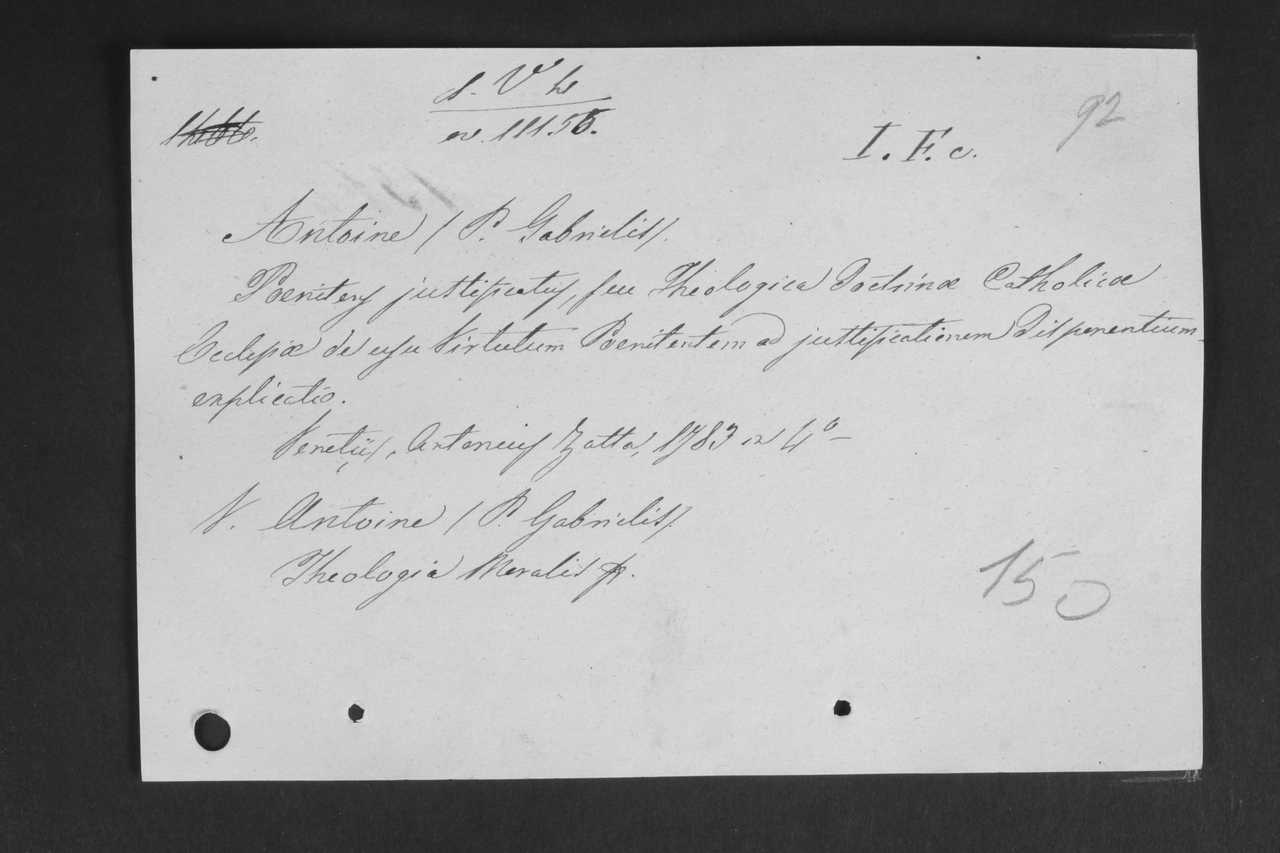 d. V h
I. F. c.
92
Antoine / P. Gabrielis /.
Poenitens justificatus, seu Theologica Doctrinæ Catholicæ
Ecclesiæ de usu Virtutum Poenitentem ad justificationem disponentium
explicatio.
Venetiis, Antonius Zatta, 1783 in 4º
V. Antoine / P. Gabrielis /.
Theologia Moralis
150